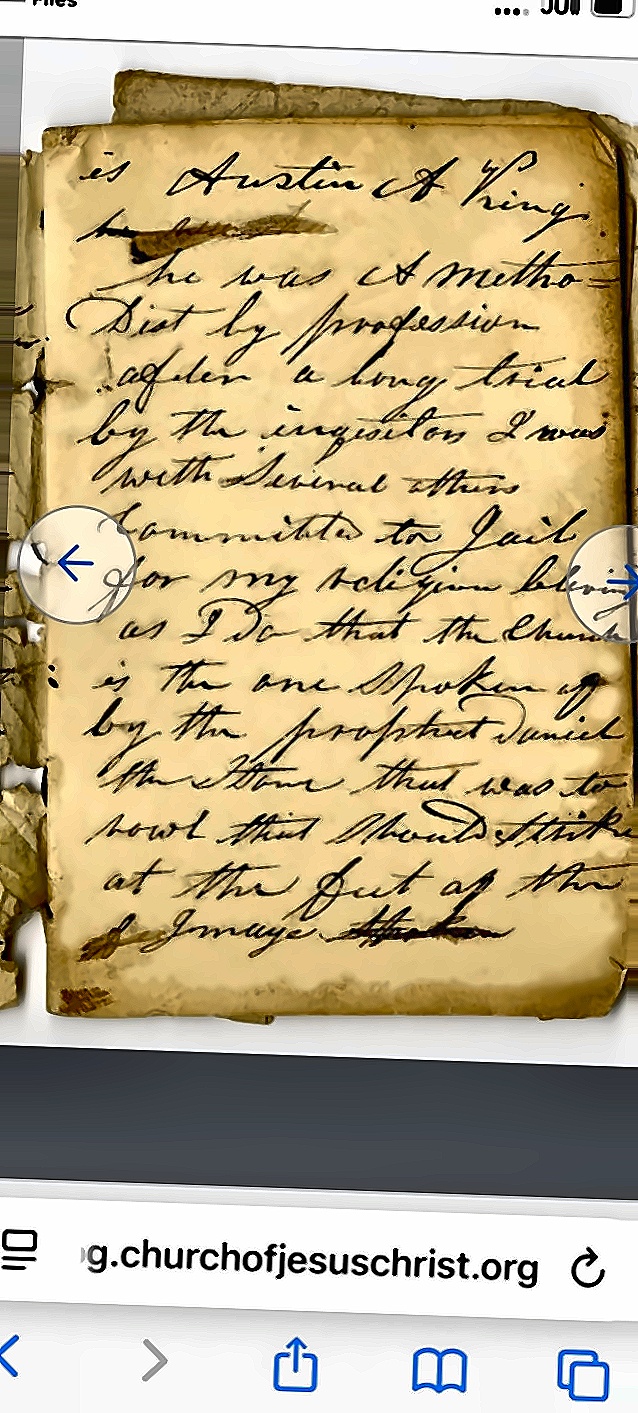 Files
is Austin A King
he
he was A metho=
Dist by profession
after a long trial
by the inquisitors I was
with Several others
Committed to Jail
for my religion beleiving
as I Do that the Church
is the one Spoken of
by the prophet Daniel
the Stone that was to
rowl that Should Strike
at the feet of the
Image Spoken
g.churchofjesuschrist.org